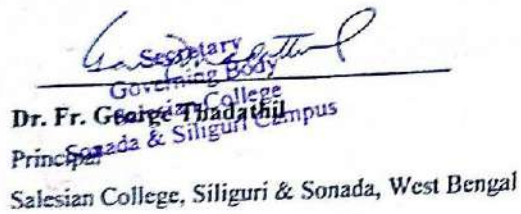 Secretary
Governing Body
Salesian College
Sonada & Siliguri Campus
Dr. Fr. George Thadathil
Principal
Salesian College, Siliguri & Sonada, West Bengal